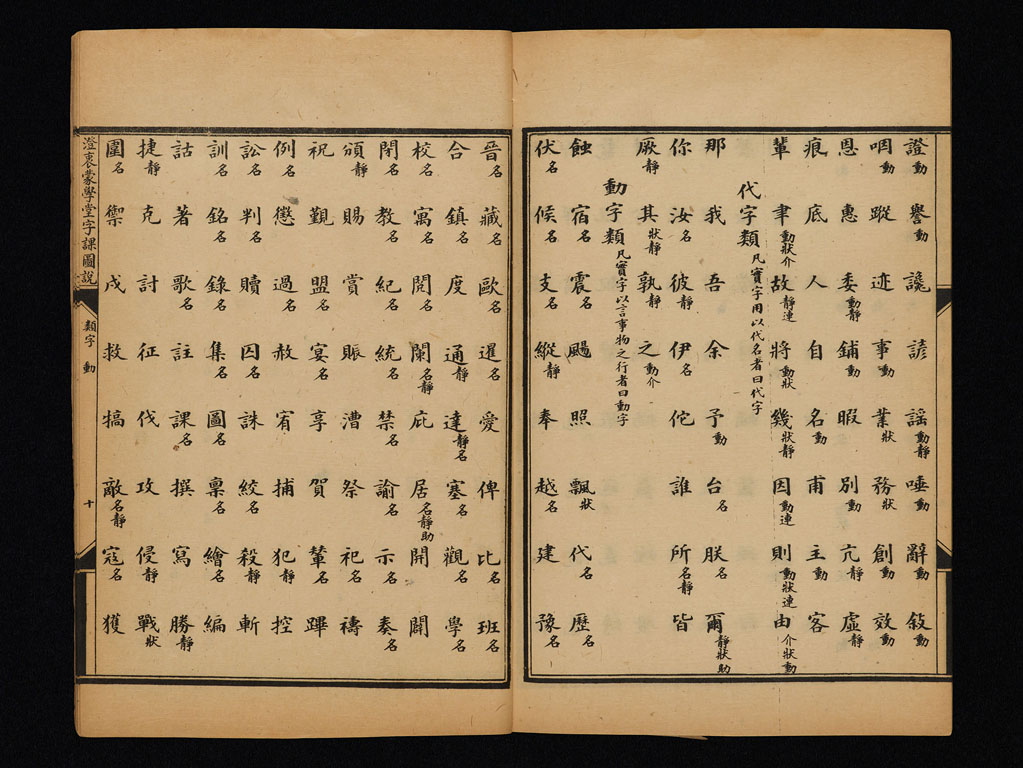 證動 譽動 讒 諺 謡動靜 唾動 辭動 敍動
咽動 蹤 迹 事動 業狀 務狀 創動 效動
恩 惠 委動靜 鋪動 暇 別動 亢靜 虛靜
痕 底 人 自 名動 甫 主動 客
輩 聿動狀介 故靜連 將動狀 幾狀靜 因動連 則動狀連 由介狀動
代字類凡實字用以代名者曰代字
那 我 吾 余 予動 台名 朕名 爾靜狀助
你 汝名 彼靜 伊名 佗 誰 所名靜 皆
厥靜 其狀靜 孰靜 之動介
動字類凡實字以言事物之行者曰動字
蝕 宿名 震名 颺 照 飄狀 代名 歷名
伏名 候名 支名 縱靜 奉 越名 建 豫名
晉名 藏名 歐名 暹名 愛 俾 比名 班名
合 鎮名 度 通靜 達靜名 塞名 觀名 學名
校名 寓名 閲名 闌名靜 庇 居名靜助 開 闢
閉名 教名 紀名 統名 禁名 諭名 示名 奏名
頒靜 賜 賞 賑 漕 祭 祀名 禱
祝 覲 盟名 宴名 享 賀 輦名 蹕
例名 懲 過名 赦 宥 捕 犯靜 控
訟名 判名 贖 囚名 誅 絞名 殺靜 斬
訓名 銘名 錄名 集名 圖名 稟名 繪名 編
詁 著 歌名 註 課名 撰 寫 勝靜
捷靜 克 討 征 伐 攻 侵靜 戰狀
圍名 禦 戍 救 犒 敵名靜 寇名 獲
澄衷蒙學堂字課圖說
類字 動
十